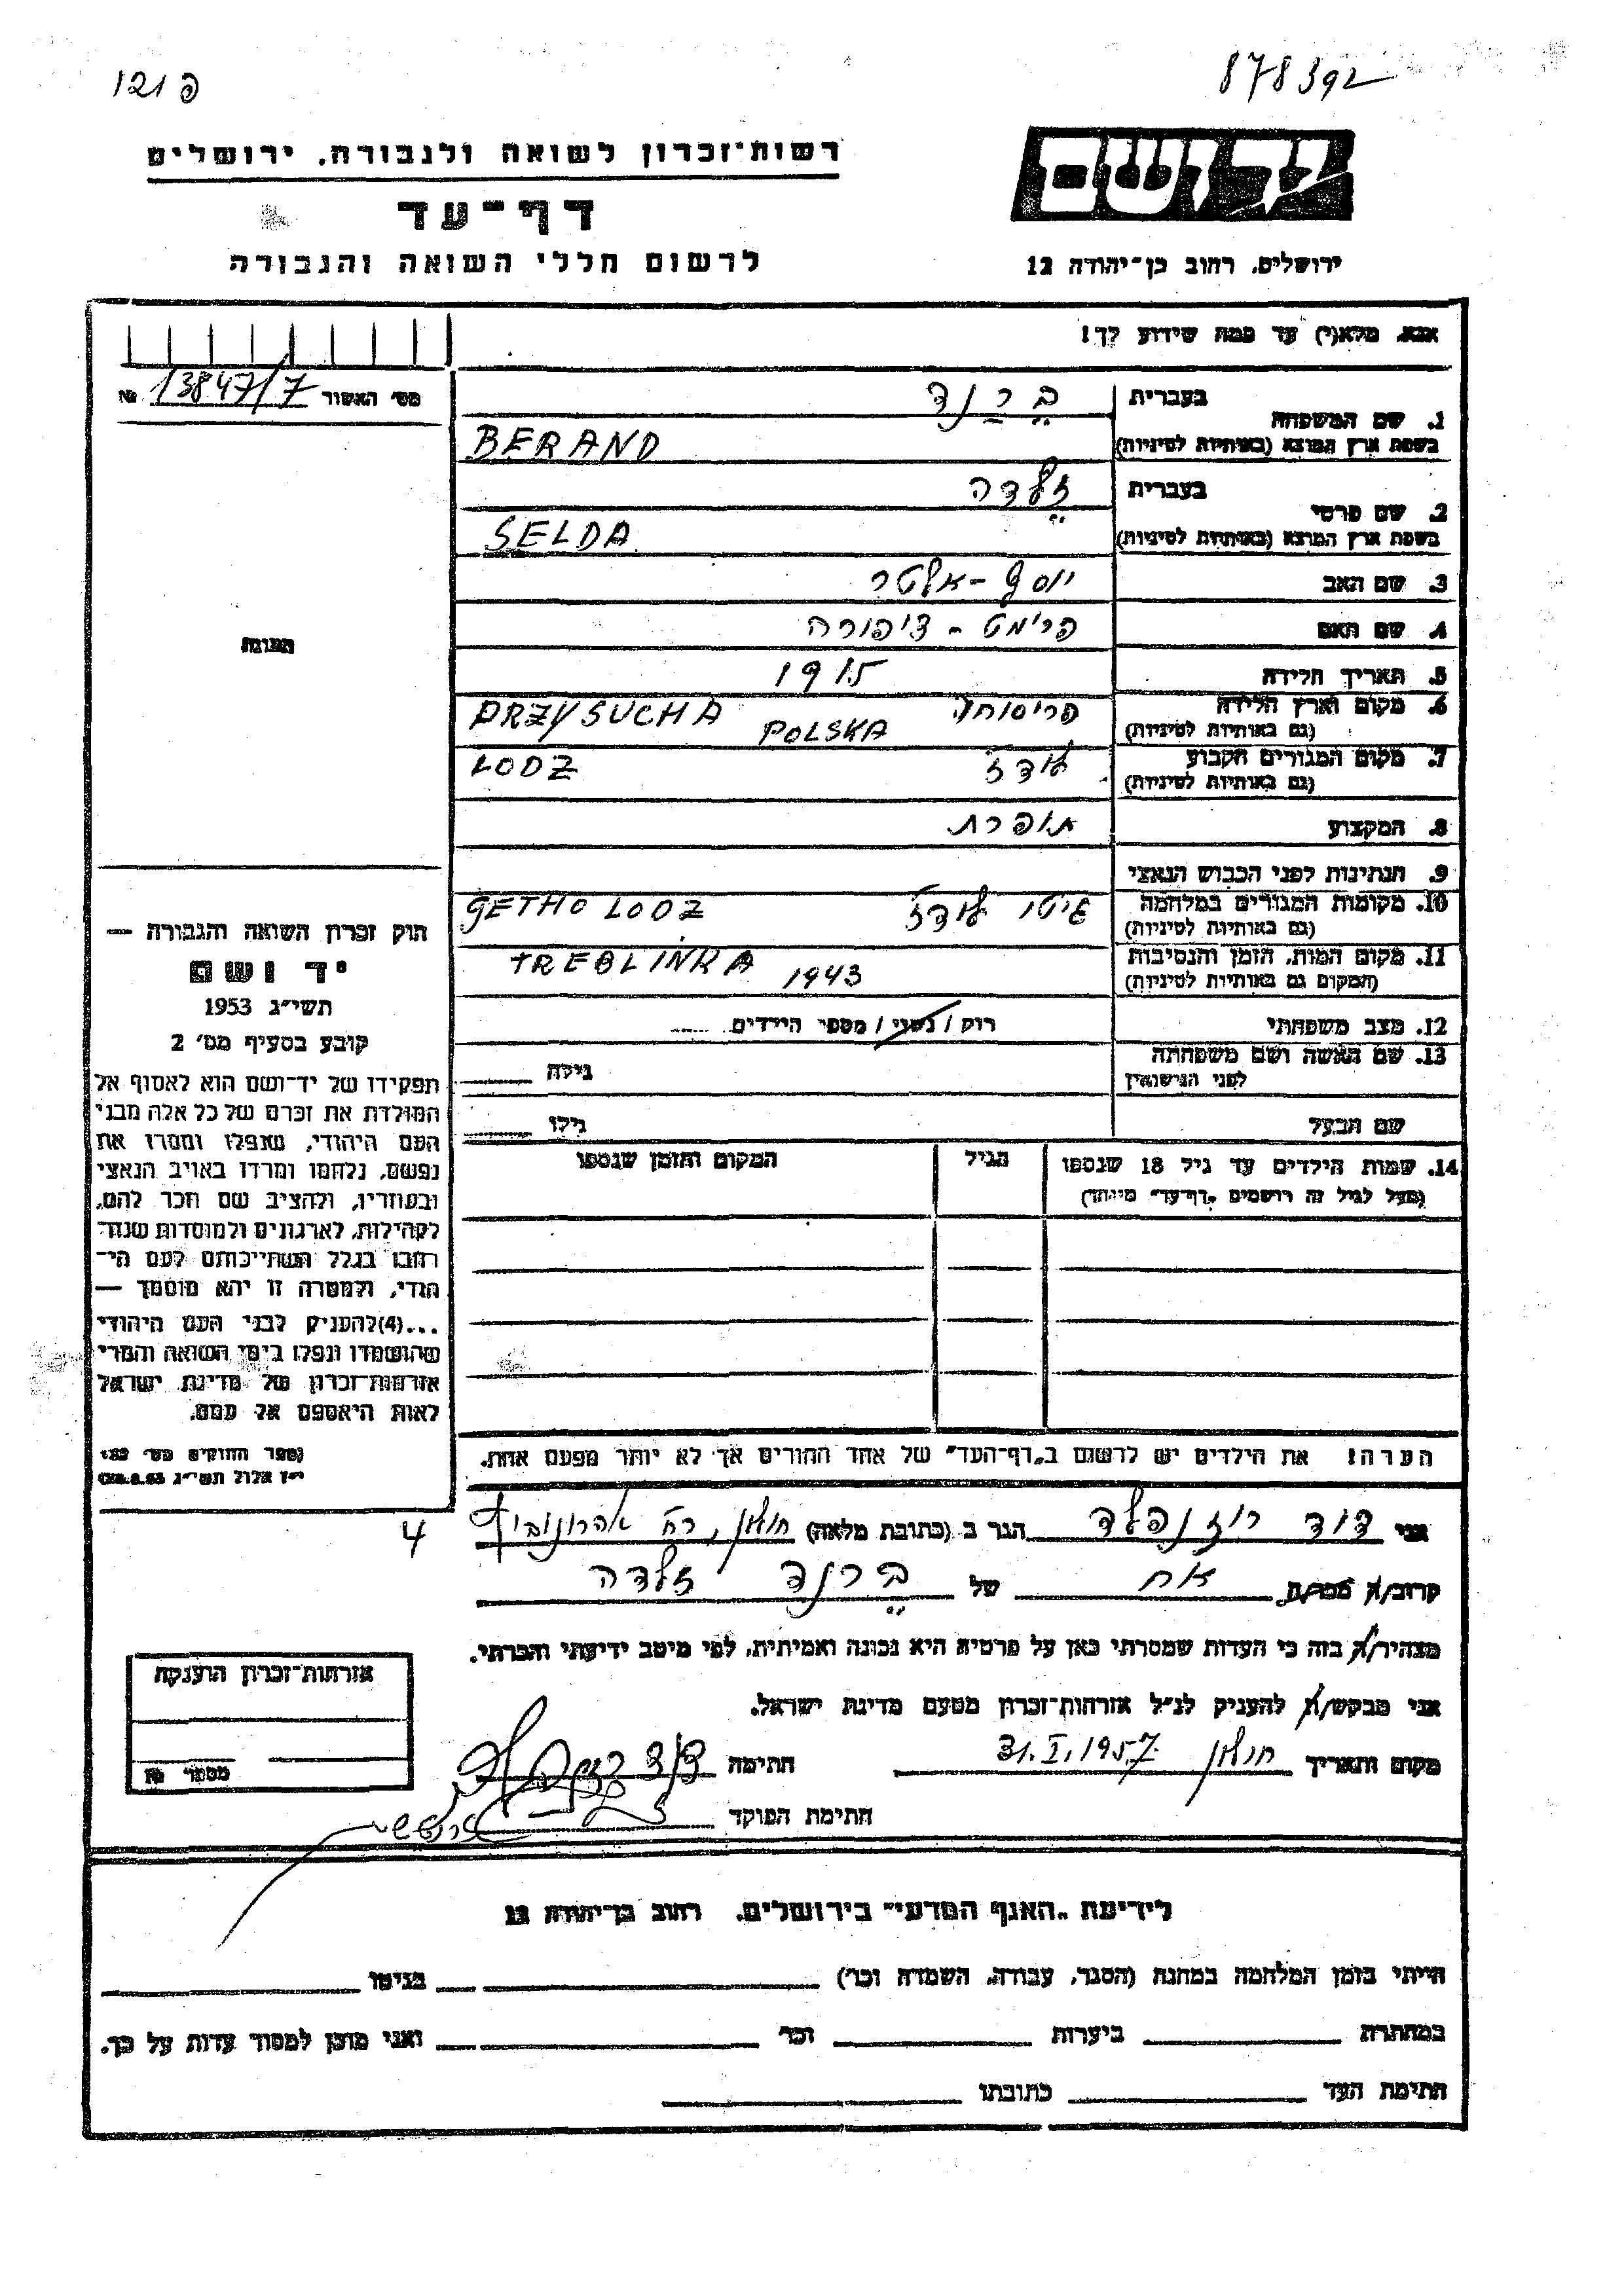 פ 121
878392
יד ושם
רשות־זכרון לשואה ולגבורה, ירושלים
דף־עד
לרשום חללי השואה והגבורה
ירושלים, רחוב בן־יהודה 12
אנא, מלא(י) עד כמה שידוע לך!
מס׳ האשור 13847/7 №
בעברית
ברנד
1. שם המשפחה
בשפת ארץ המוצא (באותיות לטיניות)
BERAND
בעברית
זלדה
2. שם פרטי
בשפת ארץ המוצא (באותיות לטיניות)
SELDA
3. שם האב יוסף - אלטר
4. שם האם פרימט - ציפורה
5. תאריך הלידה 1915
6. מקום וארץ הלידה
(גם באותיות לטיניות)
פריסוחה PRZYSUCHA POLSKA
7. מקום המגורים הקבוע
(גם באותיות לטיניות)
לודז LODZ
8. המקצוע תופרת
9. הנתינות לפני הכבוש הנאצי
10. מקומות המגורים במלחמה
(גם באותיות לטיניות)
גיטו לודז GETHO LODZ
11. מקום המות, הזמן והנסיבות
(המקום גם באותיות לטיניות)
TREBLINKA 1943
12. מצב משפחתי רוק / נשוי / מספר הילדים
13. שם האשה ושם משפחתה
לפני הנישואין
גילה
שם הבעל גילו
14. שמות הילדים עד גיל 18 שנספו
(מעל לגיל זה רושמים „דף־עד״ מיוחד)
הגיל
המקום והזמן שנספו
הערה! את הילדים יש לרשום ב„דף־העד״ של אחד ההורים אך לא יותר מפעם אחת.
התמונה
חוק זכרון השואה והגבורה —
יד ושם
תשי״ג 1953
קובע בסעיף מס׳ 2
תפקידו של יד־ושם הוא לאסוף אל
המולדת את זכרם של כל אלה מבני
העם היהודי, שנפלו ומסרו את
נפשם, נלחמו ומרדו באויב הנאצי
ובעוזריו, ולהציב שם וזכר להם,
לקהילות, לארגונים ולמוסדות שנח־
רבו בגלל השתייכותם לעם הי־
הודי, ולמטרה זו יהא מוסמך —
...(4)להעניק לבני העם היהודי
שהושמדו ונפלו בימי השואה והמרי
אזרחות־זכרון של מדינת ישראל
לאות היאספם אל עמם.
(ספר החוקים מס׳ 132
י״ז אלול תשי״ג 28.8.53)
אני דוד רוזנפלד הגר ב (כתובת מלאה) חולון, רח׳ אהרונוביץ 4
קרוב/ה מכר/ה אח של ברנד זלדה
מצהיר/ה בזה כי העדות שמסרתי כאן על פרטיה היא נכונה ואמיתית, לפי מיטב ידיעתי והכרתי.
אני מבקש/ת להעניק לנ״ל אזרחות־זכרון מטעם מדינת ישראל.
מקום ותאריך חולון 31.I.1957 חתימה
חתימת הפוקד
אזרחות־זכרון הוענקה
מספר №
לידיעת „האגף המדעי״ בירושלים, רחוב בן־יהודה 12
הייתי בזמן המלחמה במחנה (הסגר, עבודה, השמדה וכו׳) בגיטו
במחתרת ביערות וכו׳ ואני מוכן למסור עדות על כך.
חתימת העד כתובתו